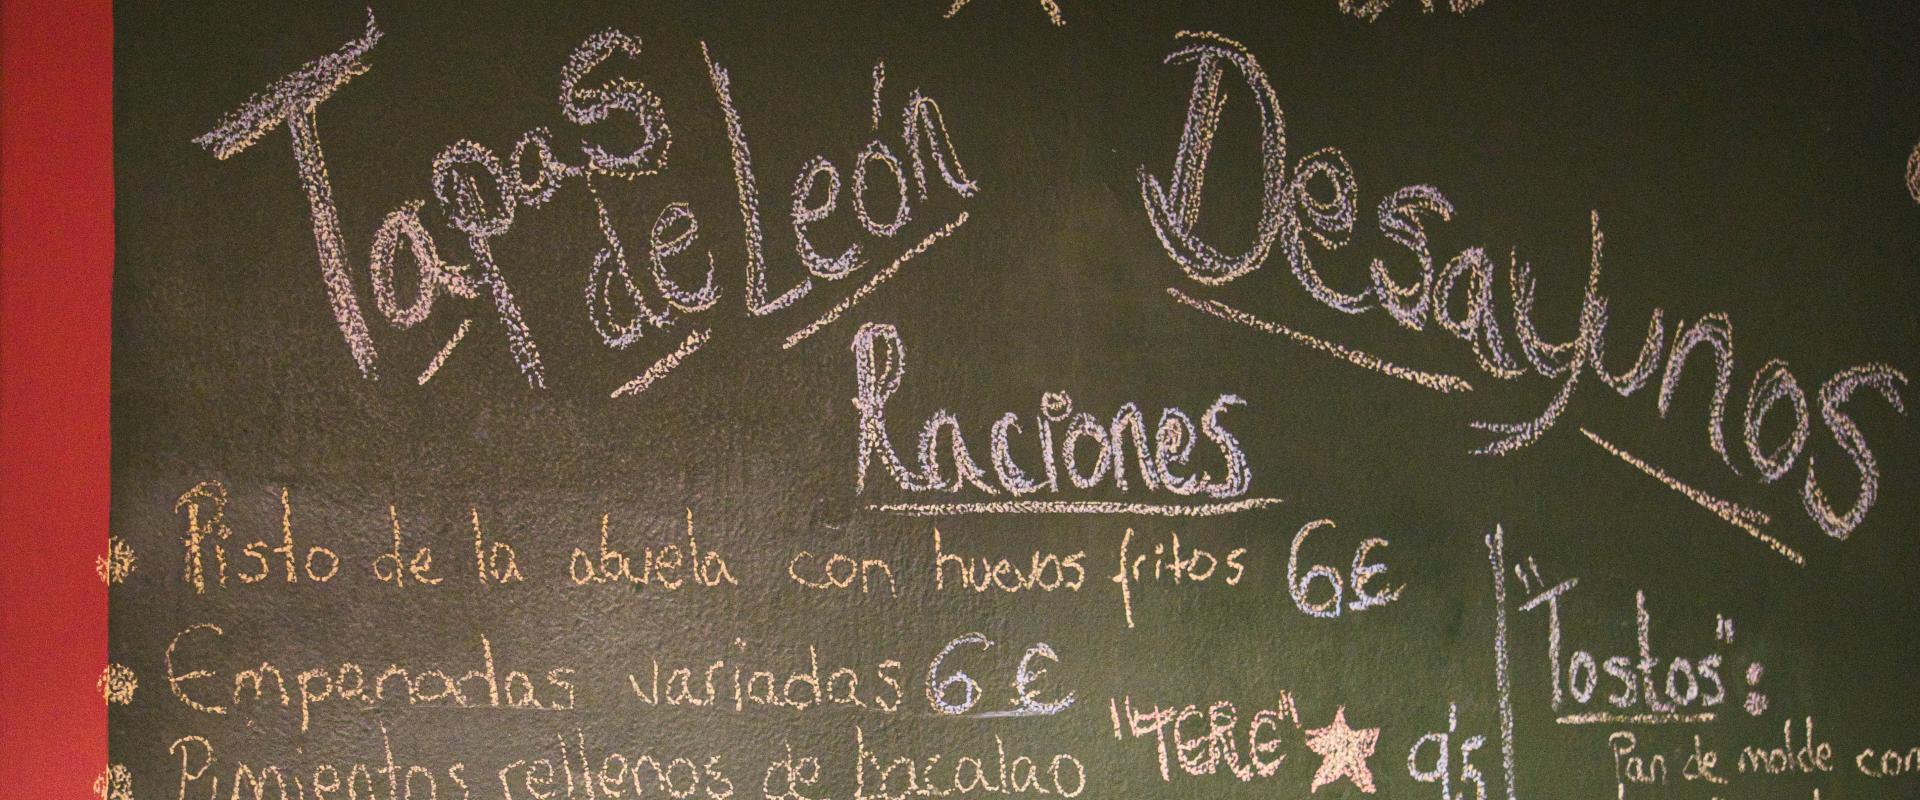 Tapas de León
Desayunos
Raciones
Pisto de la abuela con huevos fritos 6€
Empanadas variadas 6€
Pimientos rellenos de bacalao "TERE" 9'5
"Tostas":
Pan de molde con